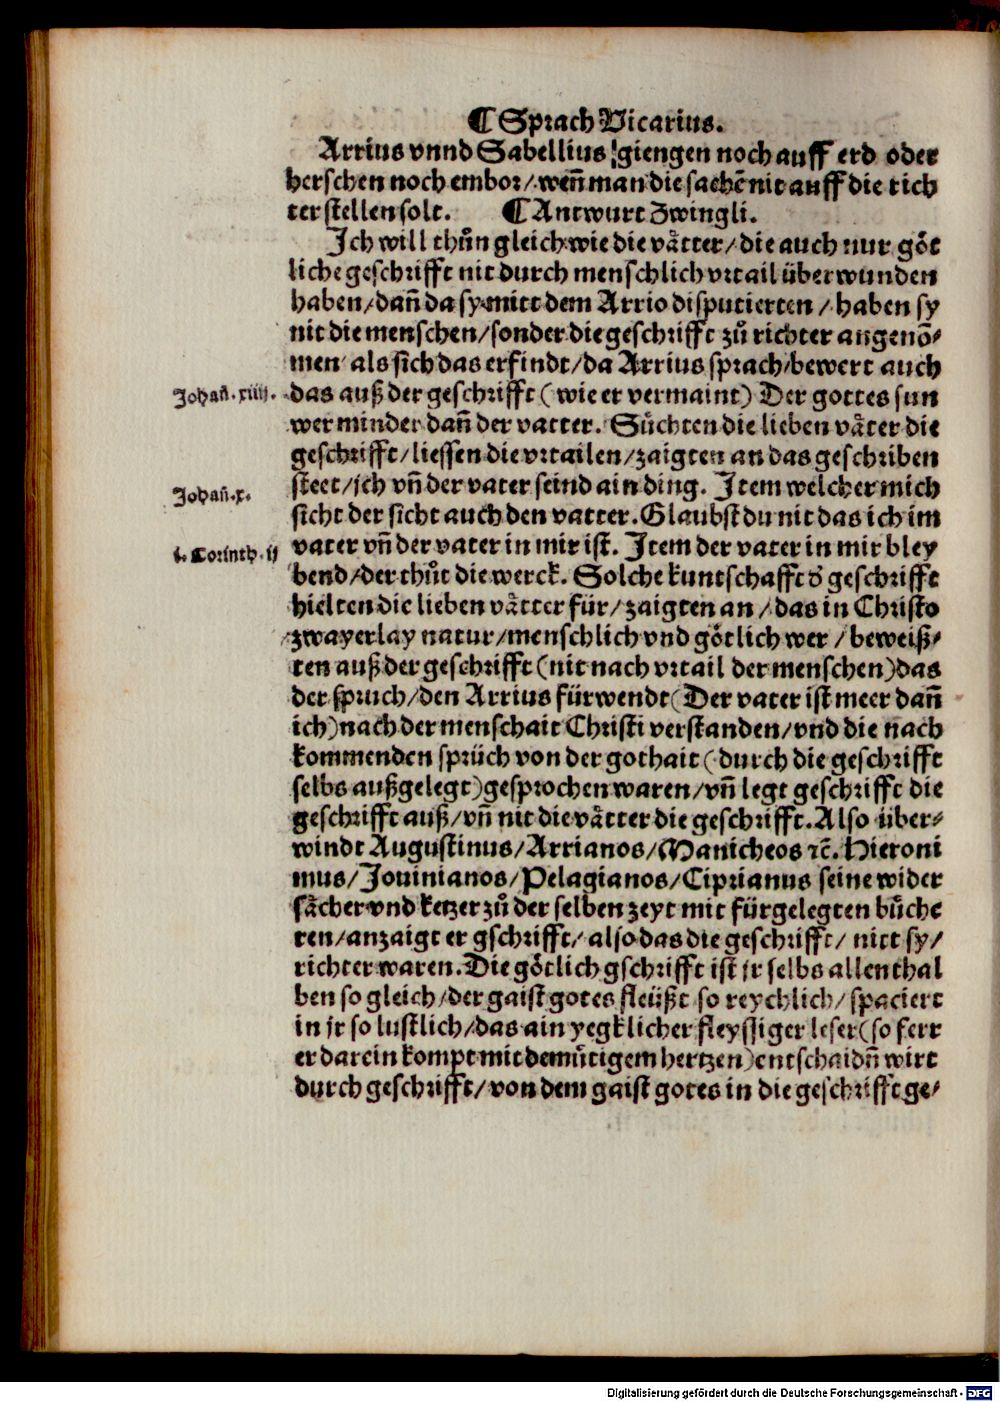 ¶ Sprach Vicarius.
Arrius vnnd Sabellius / giengen noch auff erd oder
herschen noch embor / weñ man die sachẽ nit auff die rich
ter stellen solt. ¶ Antwurt Zwingli.
Jch will thůn gleich wie die vaͤtter / die auch nur goͤt
liche geschrifft nit durch menschlich vrtail überwunden
haben / dañ da sy mitt dem Arrio disputierten / haben sy
nit die menschen / sonder die geschrifft zů richter angenõ⸗
men als sich das erfindt / da Arrius sprach / bewert auch
Johañ. xiiij.
das auß der geschrifft ( wie er vermaint ) Der gottes sun
wer minder dañ der vatter. Sůchten die lieben vaͤter die
geschrifft / liessen die vrtailen / zaigten an das geschriben
Johañ. x.
steet / ich vñ der vater seind ain ding. Jtem welcher mich
sicht der sicht auch den vatter. Glaubst du nit das ich im
i. Corinth. ij
vater vñ der vater in mir ist. Jtem der vater in mir bley
bend / der thůt die werck. Solche kuntschafft d̕ geschrifft
hielten die lieben vaͤtter für / zaigten an / das in Christo
zwayerlay natur / menschlich vnd goͤtlich wer / beweiß⸗
ten auß der geschrifft ( nit nach vrtail der menschen ) das
der spruch / den Arrius fürwendt ( Der vater ist meer dañ
ich ) nach der menschait Christi verstanden / vnd die nach
kommenden sprüch von der gothait ( durch die geschrifft
selbs außgelegt ) gesprochen waren / vñ legt geschrifft die
geschrifft auß / vñ nit die vaͤtter die geschrifft. Also über⸗
windt Augustinus / Arrianos / Manicheos ꝛc̃. Hieroni
mus / Jouinianos / Pelagianos / Ciprianus seine wider
saͤcher vnd ketzer zů der selben zeyt mit fürgelegten bůche
ren / anzaigt er gschrifft / also das die geschrifft / nitt sy /
richter waren. Die goͤtlich gschrifft ist jr selbs allenthal
ben so gleich / der gaist gotes fleüßt so reychlich / spaciert
in jr so lustlich / das ain yegklicher fleyssiger leser ( so ferr
er darein kompt mit demůtigem hertzen ) entschaidñ wirt
durch geschrifft / von dem gaist gotes in die geschrifft ge⸗
Digitalisierung gefördert durch die Deutsche Forschungsgemeinschaft - DFG